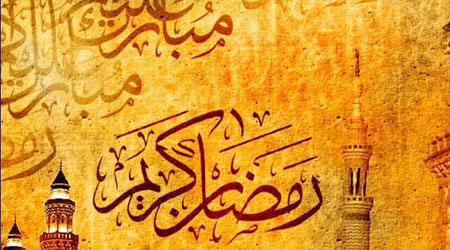 مبارك عليكم
مبارك عليكم
رمضان كريم